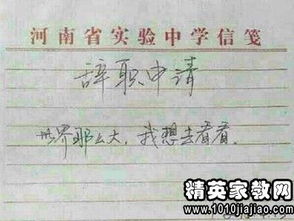 河南省实验中学信笺
辞职申请
世界那么大，我想去看看。
精英家教网
www.1010jiajiao.com